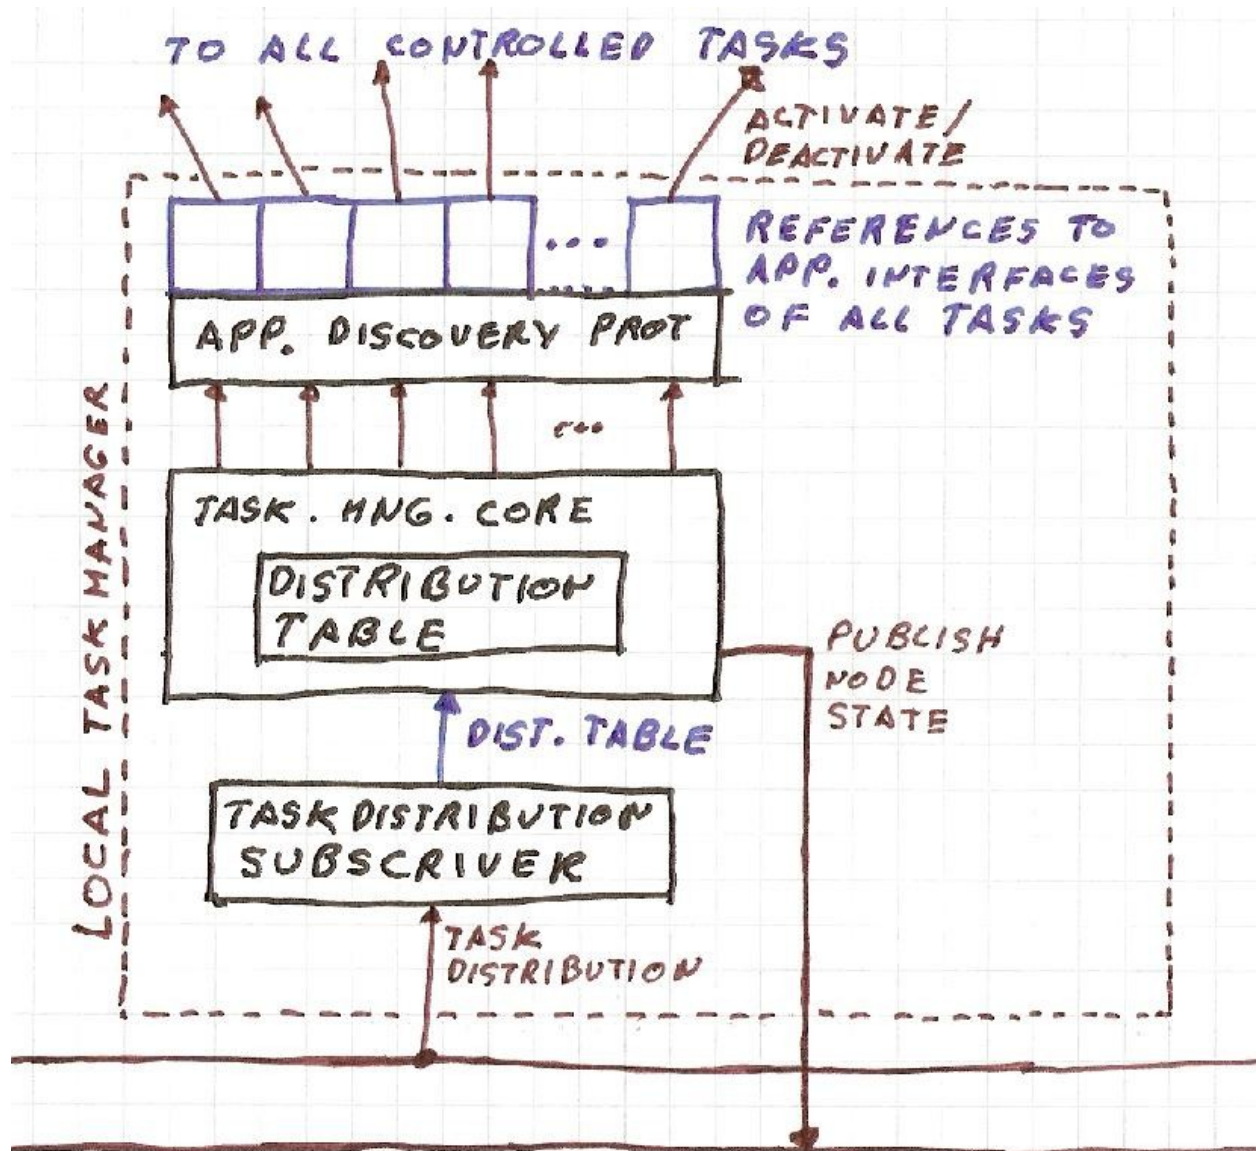 TO ALL CONTROLLED TASKS
ACTIVATE/
DEACTIVATE
REFERENCES TO
APP. INTERFACES
OF ALL TASKS
APP. DISCOVERY PROT
LOCAL TASK MANAGER
TASK. MNG. CORE
DISTRIBUTION
TABLE
PUBLISH
NODE
STATE
DIST. TABLE
TASK DISTRIBUTION
SUBSCRIVER
TASK
DISTRIBUTION